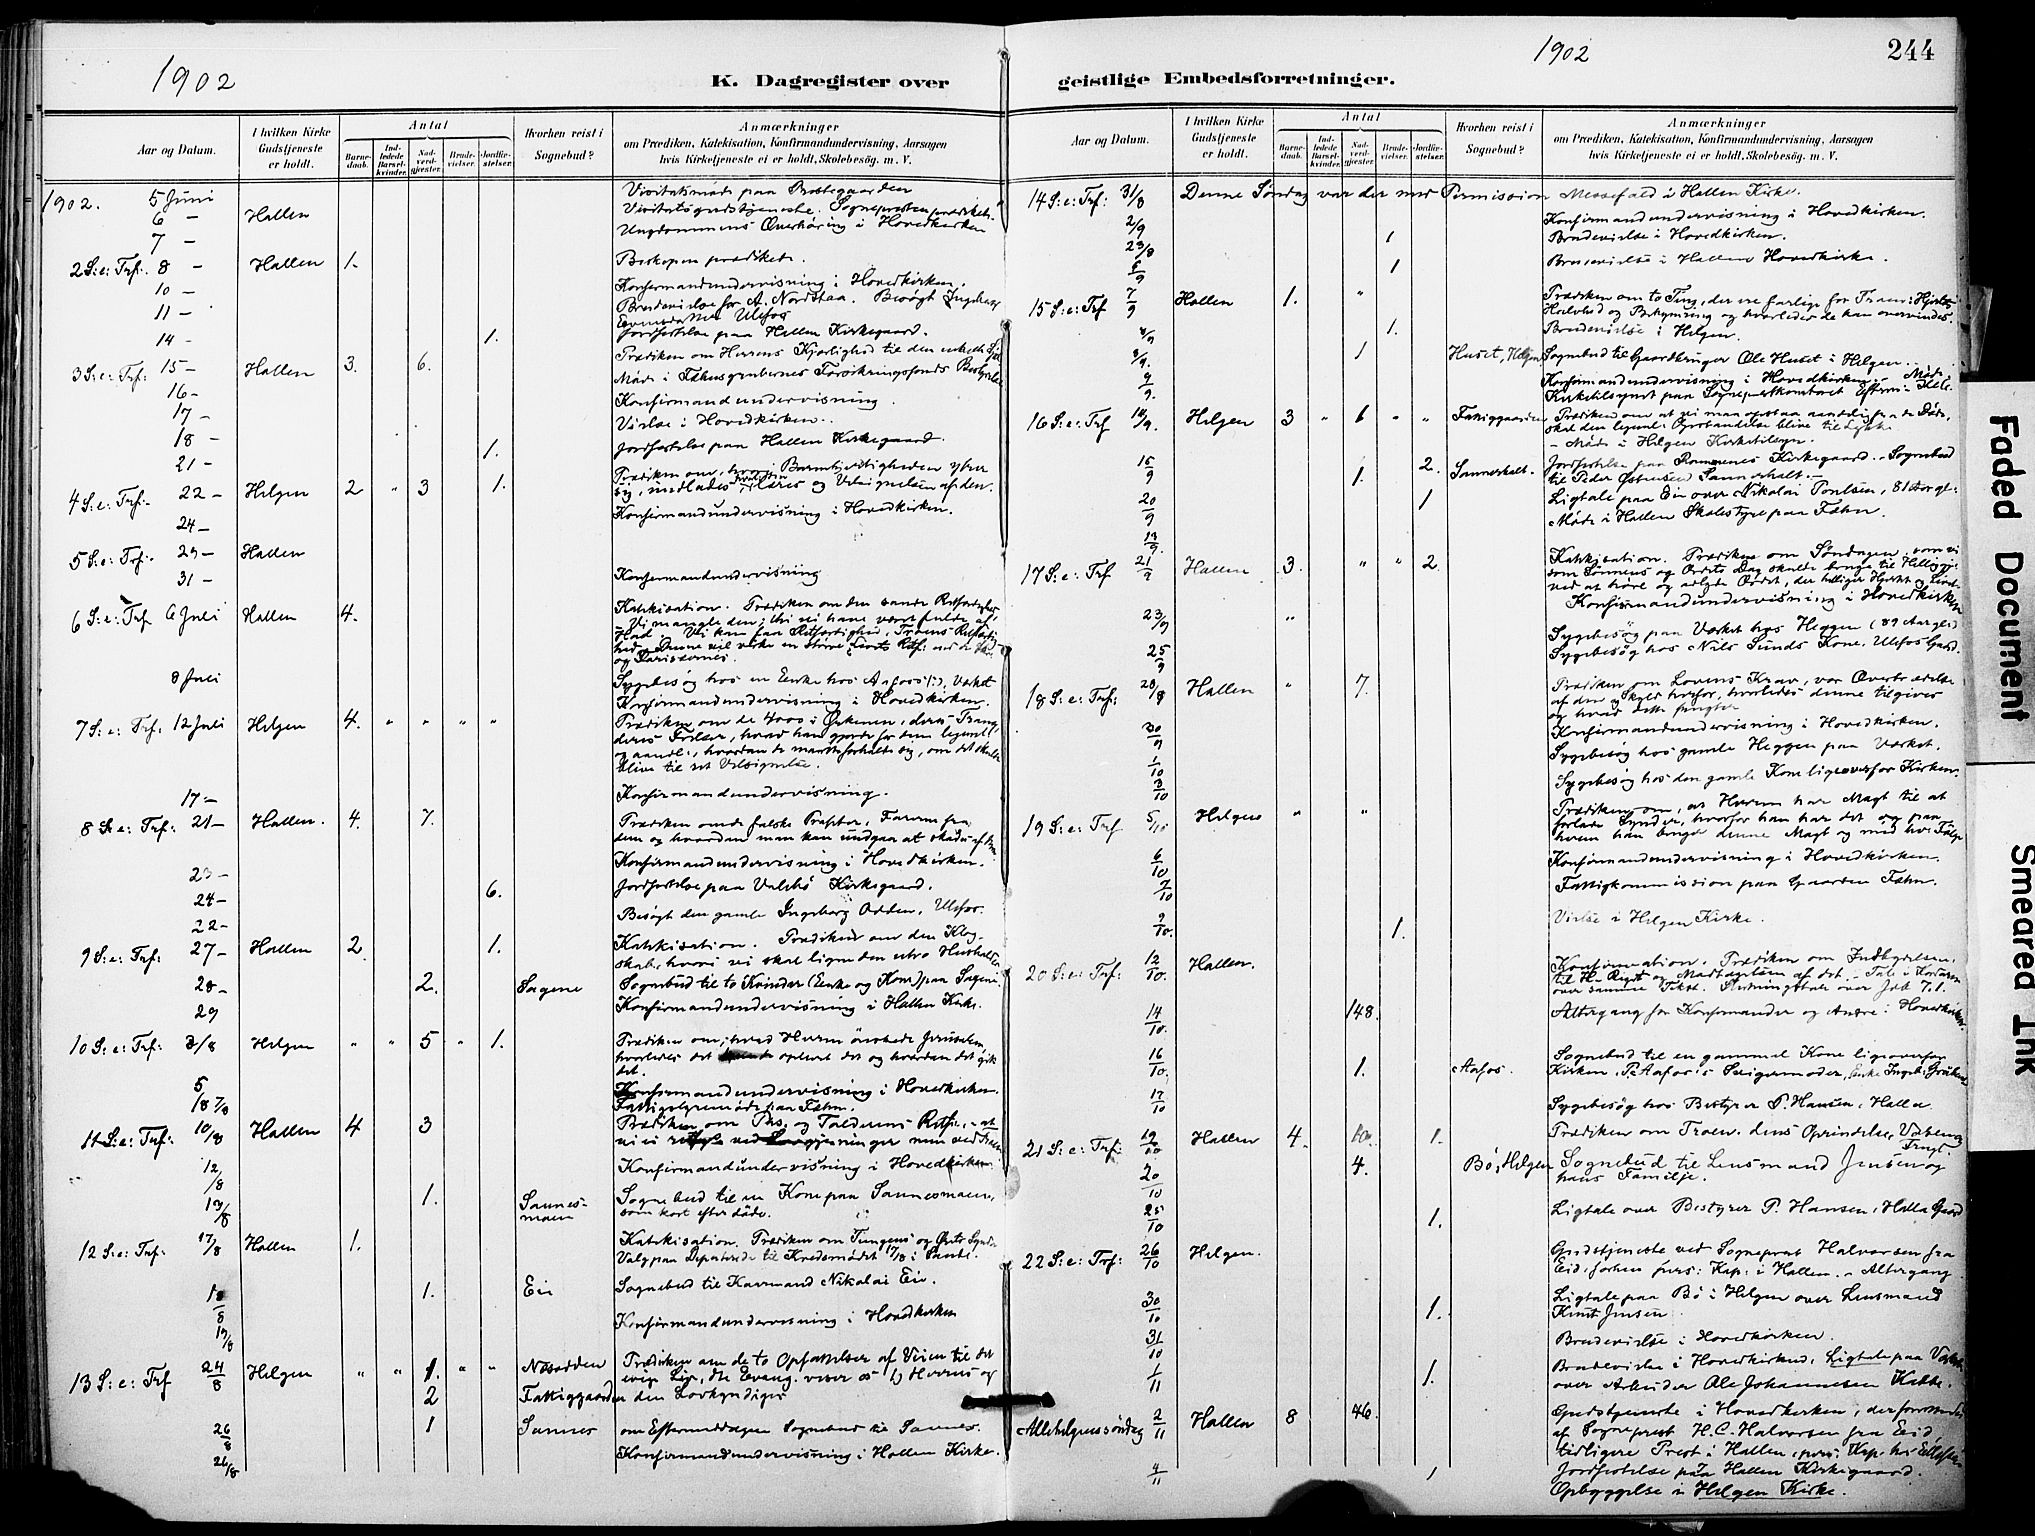 1902
K. Dagregister over
geistlige Embedsforretninger.
1902
244
Aar og Datum.
I hvilken Kirke Gudstjeneste er holdt.
Antal
Barnedaab.
Indledede Barselkvinder.
Nadverdgjester.
Brudevielser.
Jordfæstelser.
Hvorhen reist i Sognebud?
Anmærkninger
om Prædiken, Katekisation, Konfirmandundervisning, Aarsagen
hvis Kirketjeneste ei er holdt, Skolebesøg. m. V.
1902. 5 Juni Visitatsmøde paa Præstegaarden
6 - Hallen Visitatsgudstjeneste. Sognepresten prædikede.
7 - Ungdommens Overhøring i Hovedkirken
2 S: e: Trf: 8 - Hallen 1. Biskopen prædikede.
10 - Konfirmandundervisning i Hovedkirken.
11 - Brudevielse for A. Nordstaa. Besøgt Ingeborg
Ulefos
14 - 1. Jordfæstelse paa Hallen Kirkegaard.
3 S: e: Trf: 15 - Hallen 3. 6. Prædiken om Herrens Kjærlighed til den enkelte Sjæl
16 - Møde i Fæhusgrubernes Forsikringsfonds Bestyrelse
17 - Konfirmandundervisning.
18 - Vielse i Hovedkirken.
21 - 1. Jordfæstelse paa Hallen Kirkegaard.
4 S: e: Trf: 22 - Helgen 2 " 3 1. Prædiken om, hvori Barmhjertigheden ytrer
sig, og Velsignelsen af den.
24 - Konfirmandundervisning i Hovedkirken.
5 S: e: Trf: 29 - Hallen
31 - Konfirmandundervisning
6 S: e: Trf 6 Juli Hallen 4. Katekisation. Prædiken om den sande Retfærdighed
og Farisæernes.
8 Juli Sygebesøg hos en Enke hos Aafoss, Værket
Konfirmandundervisning i Hovedkirken.
7 S: e: Trf. 12 Juli Helgen 4. " " " " Prædiken om de 4000 i Ørkenen, deres Trang
deres Frelser, hvad han gjorde for dem legemlig
og aandel:, hvordan de maatte forholde sig, om det skulde
blive til ret Velsignelse.
17 - Konfirmandundervisning.
8 S: e: Trf: 21 - Hallen. 4. 7. Prædiken om de falske Profeter, Faren fra
dem og hvordan man kan undgaa at skades af dem
Konfirmandundervisning i Hovedkirken.
23 -
24 - 6. Jordfæstelse paa Valebø Kirkegaard.
22 - Besøgt den gamle Ingeborg Odden, Ulefos.
9 S: e: Trf: 27 - Hallen 2 1. Katekisation. Prædiken om den Klog-
skab, hvori vi skal ligne den utro Husholder
28 - 2. Sagene Sognebud til to Kvinder (Enke og Kone) paa Sagene.
29 Konfirmandundervisning i Hallen Kirke.
10 S: e: Trf: 3/8 Helgen " " 5 " 1. Prædiken om, hvad Herren ønskede Jerusalem,
hvorledes det oplevet det og hvordan det gik
det.
5/8 7/8 Konfirmandundervisning i Hovedkirken.
Fattigstyremøde paa Fæhn.
11 S: e: Trf: 10/8 Hallen 4 3 Prædiken om Phs. og Tolderens Retfr. - at
vi ei ved Lovgjerninger men ved Troen
12/8 Konfirmandundervisning i Hovedkirken
13/8 1. Sannes-
moen Sognebud til en Kone paa Sannesmoen,
som kort efter døde.
12 S: e: Trf: 17/8 Hallen 1. Katekisation. Prædiken om Tungens og Ørets Synder
Valg paa Deputerede til Kredsmødet 17/8 i Sande.
18/8 1. Eie Sognebud til Kaarmand Nikolai Eie.
19/8 Konfirmandundervisning i Hovedkirken
13 S: e: Trf 24/8 Helgen " " 1. " " Næsodden Prædiken om de to Opfattelser af Veien til det
evige Liv, dte Evang. viser os 1) Herrens og
2 Fattiggaarden den Lovkyndiges
26/8 1 Sannes om Eftermiddagen Sognebud til Sannes.
26/8 Konfirmandundervisning i Hallen Kirke.
Aar og Datum.
I hvilken Kirke Gudstjeneste er holdt.
Antal
Barnedaab.
Indledede Barselkvinder.
Nadverdgjester.
Brudevielser.
Jordfæstelser.
Hvorhen reist i Sognebud?
Anmærkninger
om Prædiken, Katekisation, Konfirmandundervisning, Aarsagen
hvis Kirketjeneste ei er holdt, Skolebesøg. m. V.
14 S: e: Trf: 31/8 Denne Søndag var der med Permission Messefald i Hallen Kirke.
2/9 Konfirmandundervisning i Hovedkirken.
23/8 1 Brudevielse i Hovedkirken.
6/9 1 Brudevielse i Hallens Hovedkirke.
15 S: e: Trf 7/9 Hallen 1. " Prædiken om to Ting, der ere farlige for Troen: Hjertets
Halvhed og Bekymring og hvorledes de kan overvindes.
8/9 1. Brudevielse i Helgen.
8/9. 1 Huset, Helgen Sognebud til Gaardbruger Ole Huset i Helgen.
9/9. Konfirmandundervisning i Hovedkirken. - Møde i
Kirketilsynet paa Sogneprestkontoret
16 S: e: Trf 14/9. Helgen 3 " 6 " " Fattiggaarden Prædiken om at vi maa opstaa aandelig fra de Døde,
skal den legeml: Opstandelse blive til Lykke
- Møde i Helgen Kirketilsyn.
15/9 1. 2. Sannerholt. Jordfæstelse paa Romnes Kirkegaard. - Sognebud
til Peder Østensen Sannerholt. -
20/9 1 Ligtale paa Eie over Nikolai Poulsen, 81 Aar gl:
13/9. Møde i Hallen Skolestyre paa Fæhn.
17 S: e: Trf 21/9 Hallen 3. " " 2 Katekisation. Prædiken om Søndagen, som vi
som Sønnens og Ordets Dag skulde bruge til Helliggj:
ved at høre og adlyde Ordet, der helliger Hjertet og Livet.
23/9 " Konfirmandundervisning i Hovedkirken
Sygebesøg paa Værket hos Heggen (89 Aar gl:)
25/9 Sygebesøg hos Nils Sunds Kone, Ulefos Gaard.
18 S: e: Trf: 28/9 Hallen " 7. Prædiken om Lovens Krav, vor Overtrædelse
af den og Skyld herfor, hvorledes denne tilgives
og hvad dette
30/9 Konfirmandundervisning i Hovedkirken.
1/10 Sygebesøg hos gamle Heggen paa Værket.
3/10 Sygebesøg hos den gamle Kone ligeoverfor Kirken.
19 S: e: Trf 5/10 Helgen " " Prædiken om, at Herren har Magt til at
forlade Synder, hvorfor han har det og paa
hvem han bruger denne Magt og med hv: Følge
6/10 Konfirmandundervisning i Hovedkirken.
7/10 Fattigkommission paa Gaarden Fæhn.
9/10. 1. Vielse i Helgen Kirke.
20 S: e: Trf: 12/10. Hallen. Konfirmation. Prædiken om Indbydelsen
til H. Rige og Modtagelsen af det. - Tale i Kordøren
over samme Tekst. Slutningstale over Job 7.1.
14/10. 148. Altergang for Konfirmander og Andre i Hovedkirken.
16/10. 1. Aafos. Sognebud til en gammel Kone ligeoverfor
Kirken, P. Aafos's Svigermoder, Enke Ingeb:
17/10 Sygebesøg hos Bestyrer P. Hansen, Halla.
21 S: e: Trf: 19/10 Hallen 4. 10. 1. Prædiken om Troen, dens Oprindelse, Væsen og
Frugt.
20/10 4. Bø, Helgen Sognebud til Lensmand Jensen og
hans Familje.
25/10 1. Ligtale over Bestyrer P. Hansen, Halla Gaard
22 S: e: Trf: 26/10 Helgen. Gudstjeneste ved Sogneprest Halvorsen fra
Eid, forhen pers: Kap: i Hallen. - Altergang
30/10 1. Ligtale paa Bø i Helgen over Lensmand
Knut Jensen
31/10 Brudevielse i Hovedkirken.
1/11 1. Brudevielse i Hovedkirken. Ligtale paa Værket
over Arbeider Ole Johannesen Kabbe.
Allehelgenssøndag 2/11 Hallen 8 46. Gudstjeneste i Hovedkirken, der forrettedes
af Sogneprest H. C. Halvorsen fra Eid,
tidligere Prest i Hallen, pers: Kap: hos
4/11 1 Jordfæstelse paa Hallen Kirkegaard.
Opbyggelse i Helgen Kirke.
Faded Document
Smeared Ink